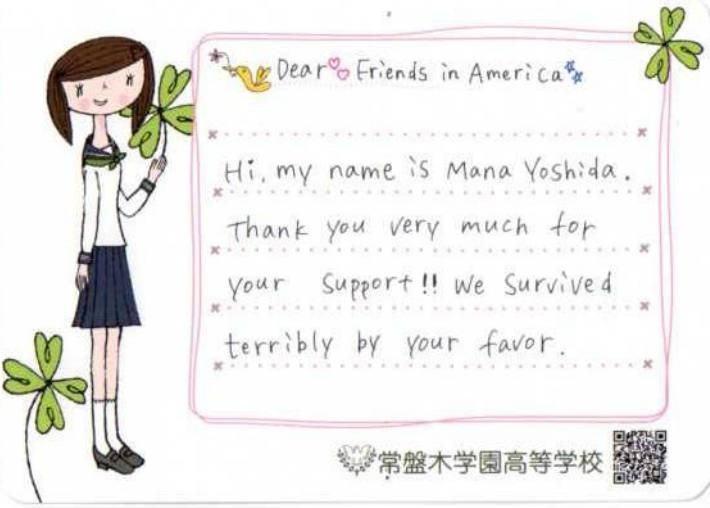 Dear Friends in America
Hi, my name is Mana Yoshida.
Thank you very much for
your support!! We survived
terribly by your favor.
常盤木学園高等学校